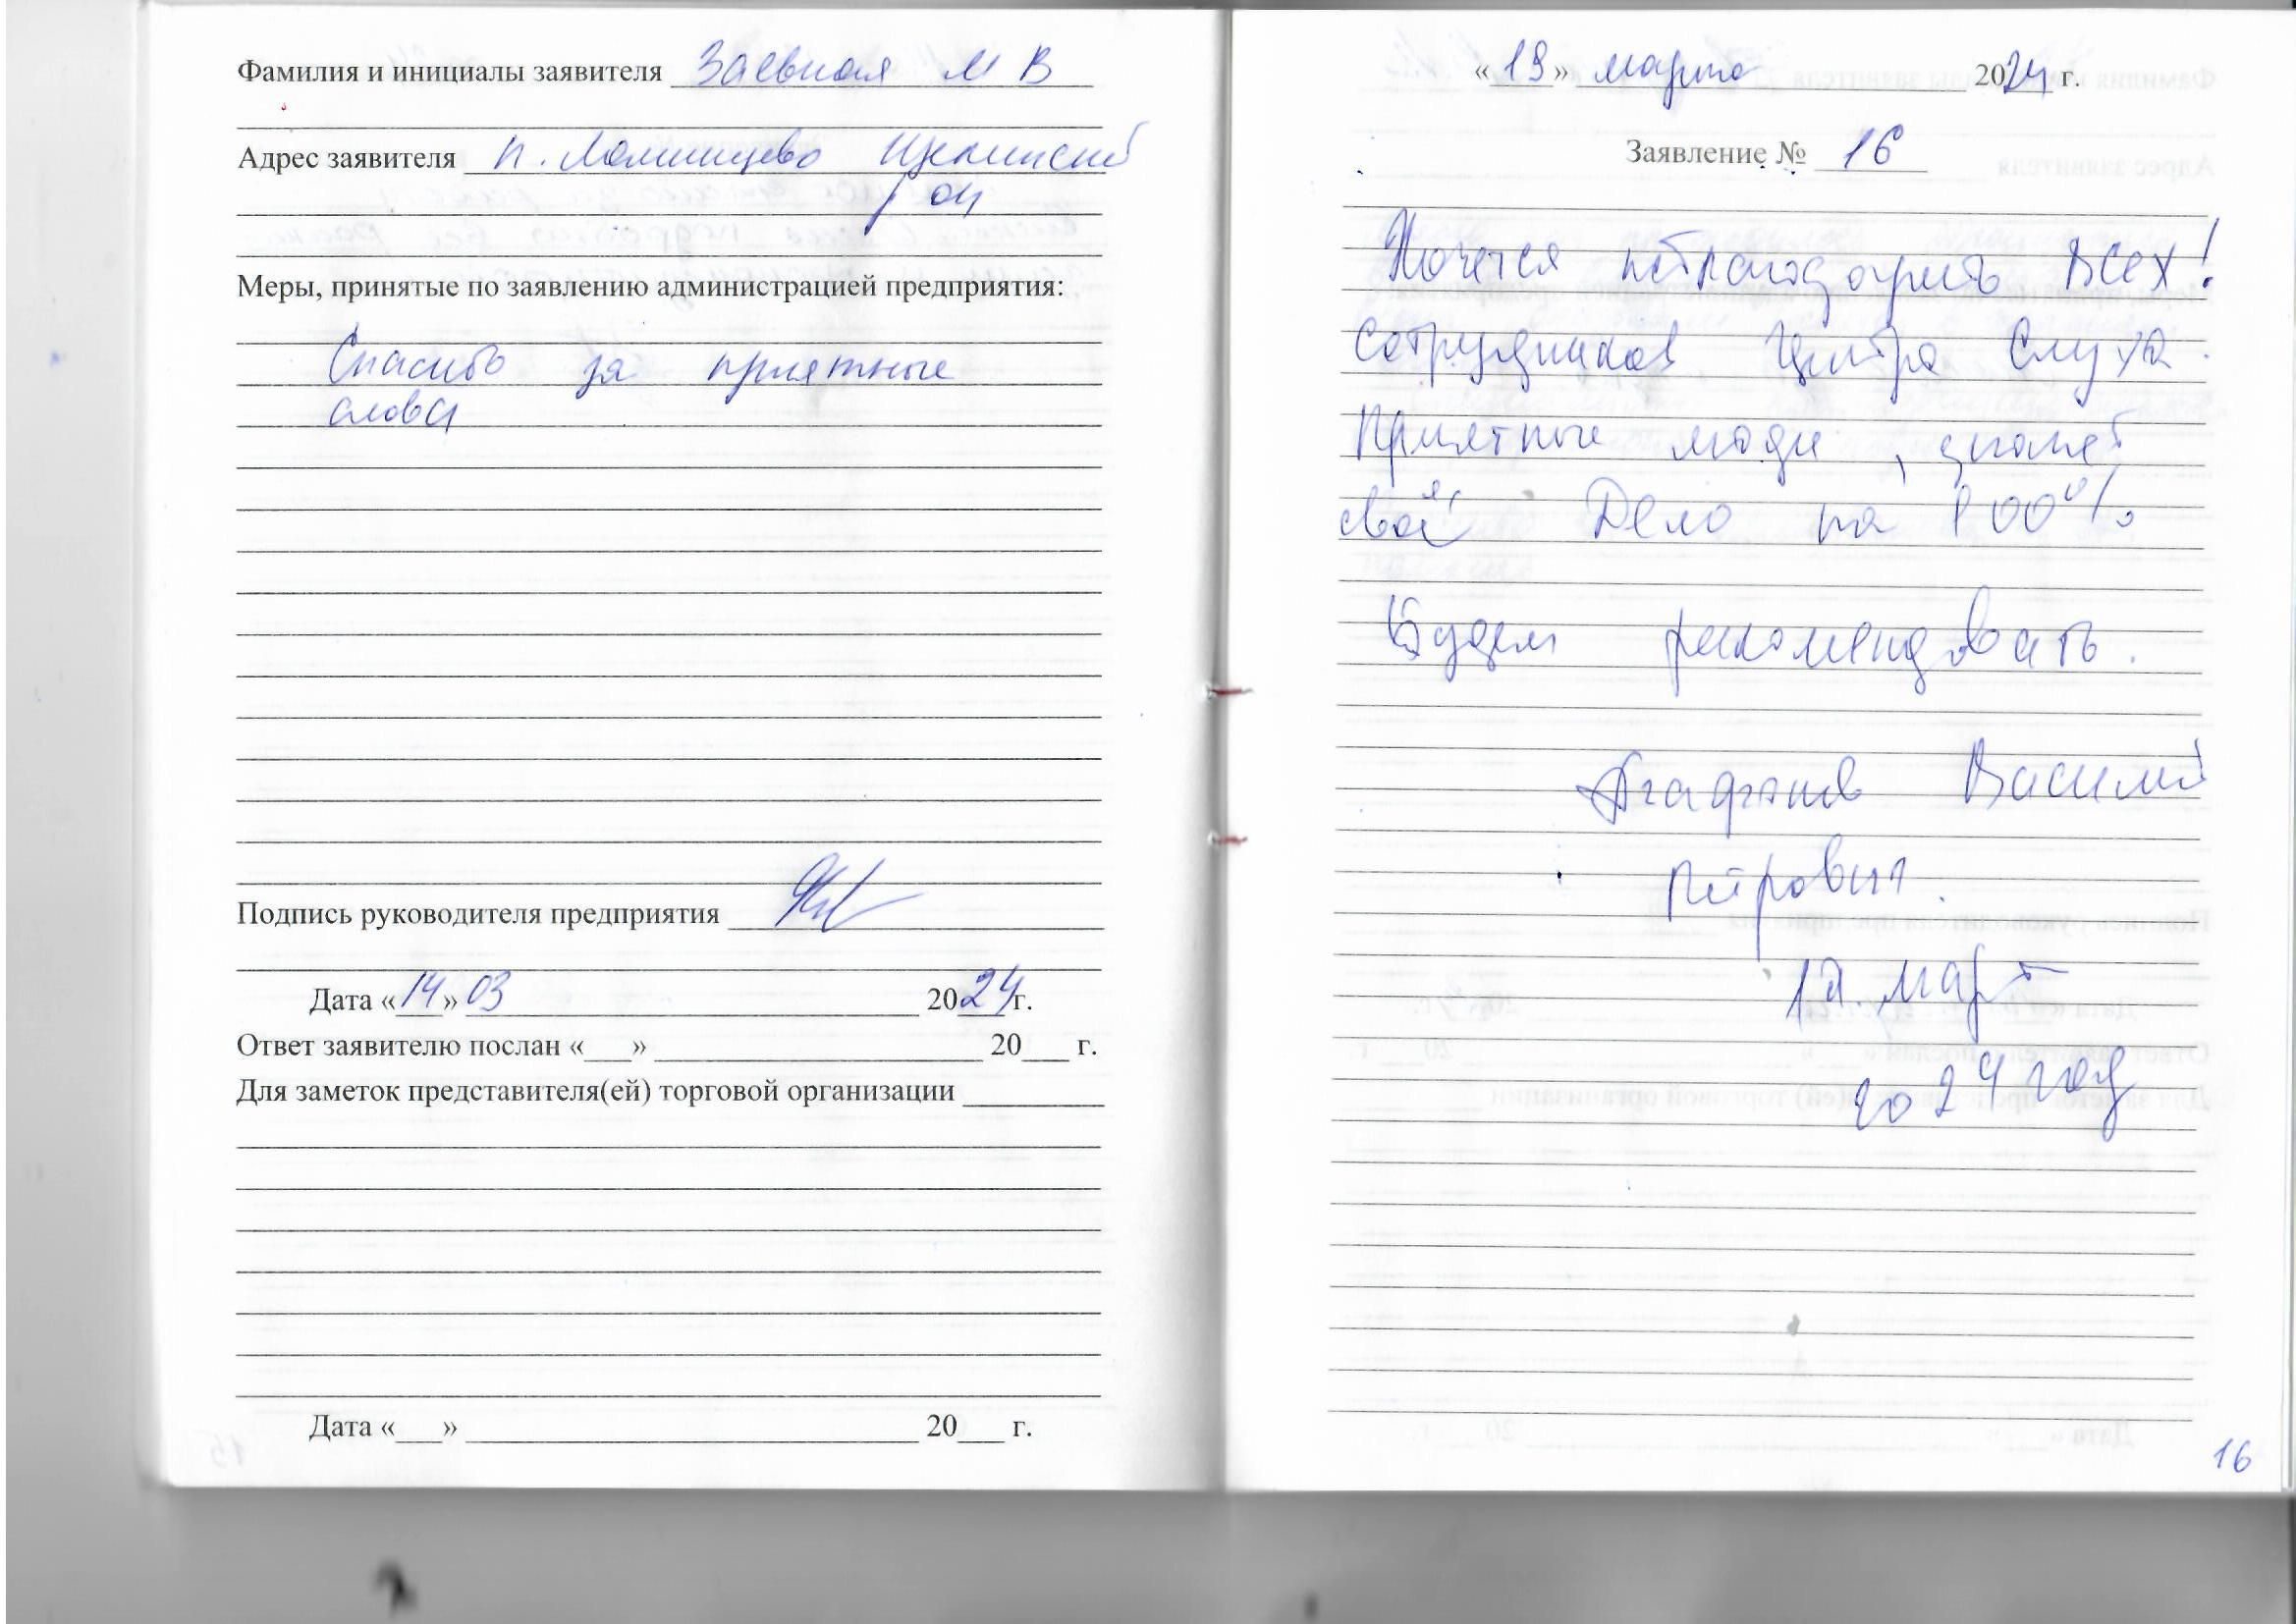 Фамилия и инициалы заявителя Заевная М В
Адрес заявителя п. Ломинцево Щекинский
р он
Меры, принятые по заявлению администрацией предприятия:
Спасибо за приятные
слова
Подпись руководителя предприятия
Дата «14» 03 2024г.
Ответ заявителю послан «___» ___ 20___ г.
Для заметок представителя(ей) торговой организации
Дата «___» ___ 20___ г.
«19» марта 2024 г.
Заявление № 16
Хочется поблагодарить всех!
сотрудников Центра Слуха.
Приятные люди, знают
своё Дело на 100%
Будем рекомендовать.
Агафонов Василий
Петрович.
март
2024 год
16